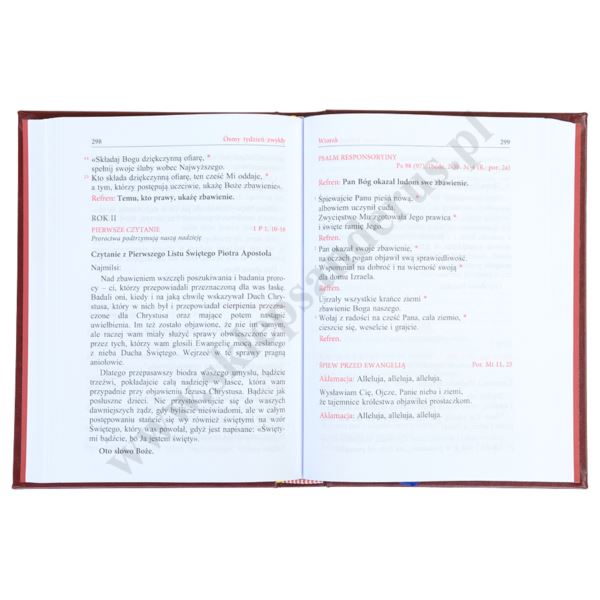 298 Ósmy tydzień zwykły
14 «Składaj Bogu dziękczynną ofiarę, *
spełnij swoje śluby wobec Najwyższego.
23 Kto składa dziękczynną ofiarę, ten cześć Mi oddaje, *
a tym, którzy postępują uczciwie, ukażę Boże zbawienie».
Refren: Temu, kto prawy, ukażę zbawienie.
ROK II
PIERWSZE CZYTANIE 1 P 1, 10-16
Proroctwa podtrzymują naszą nadzieję
Czytanie z Pierwszego Listu Świętego Piotra Apostoła
Najmilsi:
Nad zbawieniem wszczęli poszukiwania i badania proro-
cy – ci, którzy przepowiadali przeznaczoną dla was łaskę.
Badali oni, kiedy i na jaką chwilę wskazywał Duch Chry-
stusa, który w nich był i przepowiadał cierpienia przezna-
czone dla Chrystusa oraz mające potem nastąpić
uwielbienia. Im też zostało objawione, że nie im samym,
ale raczej wam miały służyć sprawy obwieszczone wam
przez tych, którzy wam głosili Ewangelię mocą zesłanego
z nieba Ducha Świętego. Wejrzeć w te sprawy pragną
aniołowie.
Dlatego przepasawszy biodra waszego umysłu, bądźcie
trzeźwi, pokładajcie całą nadzieję w łasce, która wam
przypadnie przy objawieniu Jezusa Chrystusa. Bądźcie jak
posłuszne dzieci. Nie przystosowujcie się do waszych
dawniejszych żądz, gdy byliście nieświadomi, ale w całym
postępowaniu stańcie się wy również świętymi na wzór
Świętego, który was powołał, gdyż jest napisane: «Święty-
mi bądźcie, bo Ja jestem święty».
Oto słowo Boże.
Wtorek 299
PSALM RESPONSORYJNY
Ps 98 (97),
Refren: Pan Bóg okazał ludom swe zbawienie.
Śpiewajcie Panu pieśń nową, *
albowiem uczynił cuda.
Zwycięstwo Mu zgotowała Jego prawica *
i święte ramię Jego.
Refren.
Pan okazał swoje zbawienie, *
na oczach pogan objawił swą sprawiedliwość.
Wspomniał na dobroć i na wierność swoją *
dla domu Izraela.
Refren.
Ujrzały wszystkie krańce ziemi *
zbawienie Boga naszego.
Wołaj z radości na cześć Pana, cała ziemio, *
cieszcie się, weselcie i grajcie.
Refren.
ŚPIEW PRZED EWANGELIĄ Por. Mt 11, 25
Aklamacja: Alleluja, alleluja, alleluja.
Wysławiam Cię, Ojcze, Panie nieba i ziemi,
że tajemnice królestwa objawiłeś prostaczkom.
Aklamacja: Alleluja, alleluja, alleluja.